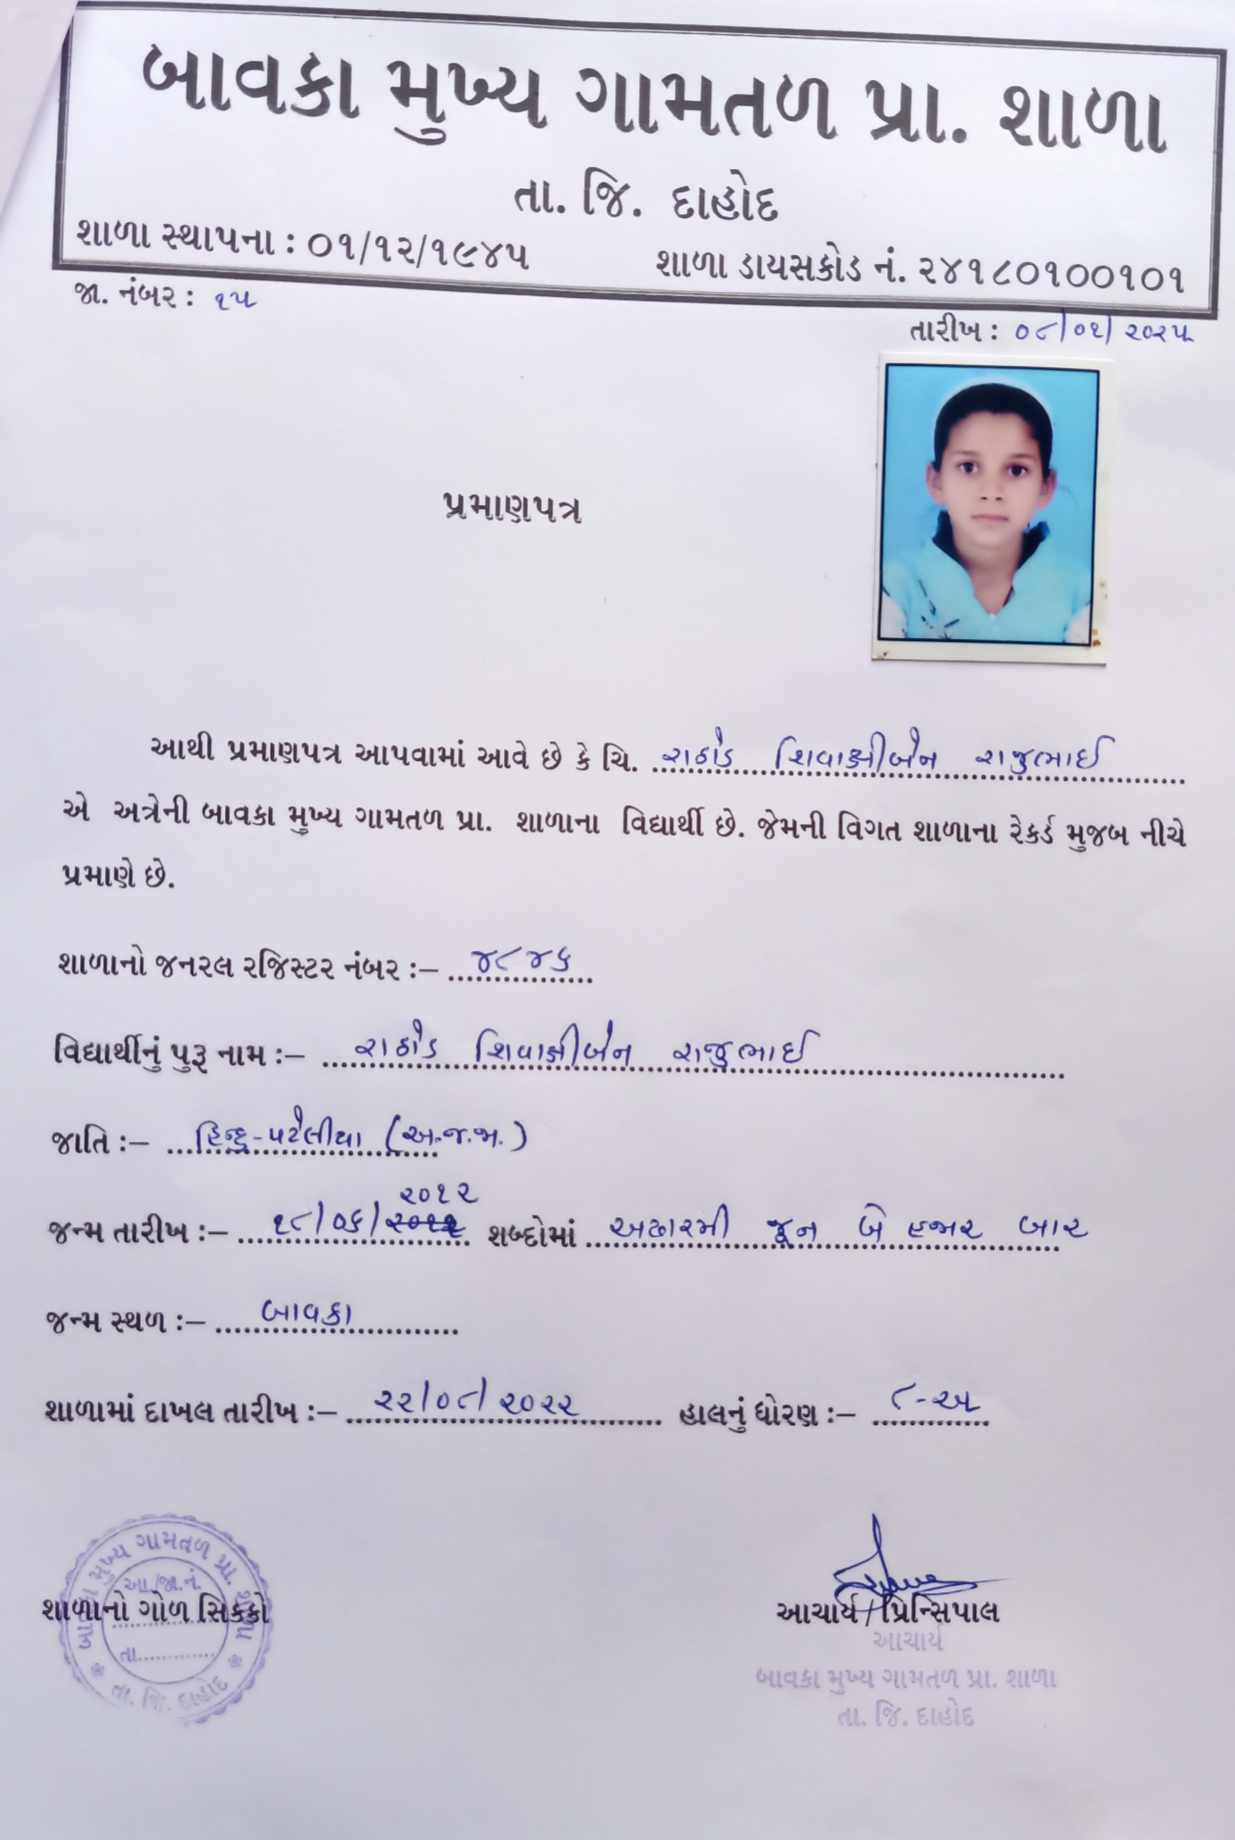 બાવકા મુખ્ય ગામતળ પ્રા. શાળા
તા. જિ. દાહોદ
શાળા સ્થાપના : ૦૧/૧૨/૧૯૪૫ શાળા ડાયસકોડ નં. ૨૪૧૮૦૧૦૦૧૦૧
જા. નંબર : ૧૫
તારીખ : ૦૮/૦૧/૨૦૨૫
પ્રમાણપત્ર
આથી પ્રમાણપત્ર આપવામાં આવે છે કે ચિ. રાઠોડ શિવાક્ષીબેન રાજુભાઈ
એ અત્રેની બાવકા મુખ્ય ગામતળ પ્રા. શાળાના વિદ્યાર્થી છે. જેમની વિગત શાળાના રેકર્ડ મુજબ નીચે
પ્રમાણે છે.
શાળાનો જનરલ રજિસ્ટર નંબર :– ૪૮૪૬
વિદ્યાર્થીનું પુરૂ નામ :– રાઠોડ શિવાક્ષીબેન રાજુભાઈ
જાતિ :– હિન્દુ-પટેલીયા (અ.જ.જા.)
૨૦૧૨
જન્મ તારીખ :– ૧૮/૦૬/ શબ્દોમાં અઢારમી જૂન બે હજાર બાર
જન્મ સ્થળ :– બાવકા
શાળામાં દાખલ તારીખ :– ૨૨/૦૮/૨૦૨૨ હાલનું ધોરણ :– ૮-અ
બાવકા મુખ્ય ગામતળ પ્રા. શાળા
આ./જા.નં.
શાળાનો ગોળ સિક્કો
તા.
તા. જિ. દાહોદ
આચાર્ય / પ્રિન્સિપાલ
આચાર્ય
બાવકા મુખ્ય ગામતળ પ્રા. શાળા
તા. જિ. દાહોદ